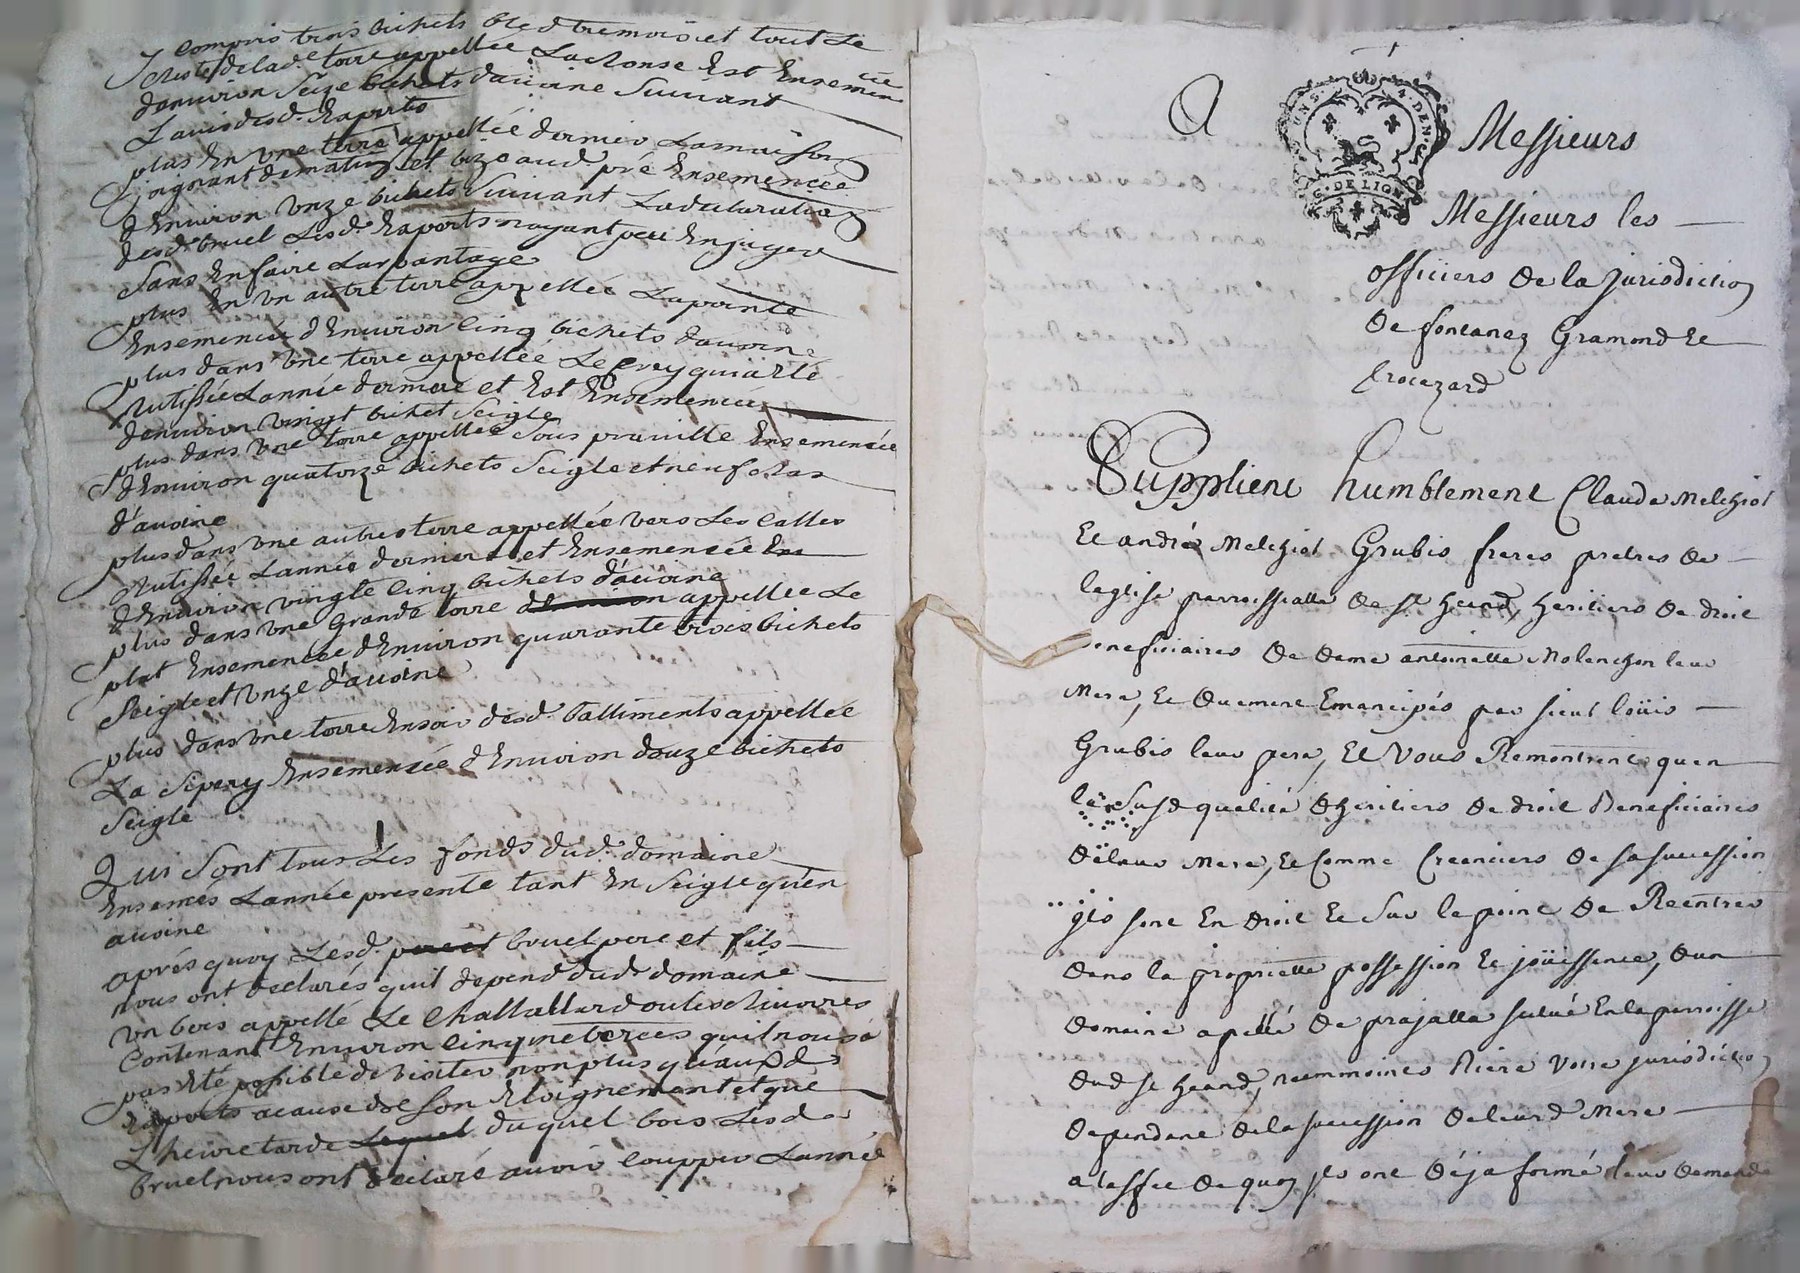 y compris trois bichets bled tremois et tout Le
Reste de lad. terre appellée La Ronse Est Ensemencée
denuiron Seize bichets dauoine Suiuant
L auis desd. Raports
plus En vne terre appellée dernier La maison
joignant de matin et bize aud. pré Ensemencée
d Enuiron vnze bichets Suiuant La declaration
desd. bruel Lesd. Raports nayant peu En juger
Sans En faire Larpantage
plus En vn autre terre appellée La pointe
Ensemencée d Enuiron Cinq bichets dauoine
plus dans vne terre appellée Le Crey qui a Eté
Rutissée Lannée derniere et Est Ensemencée
denuiron vingt bichet Seigle
plus dans vne terre appellée Sous prauille Ensemencée
d Enuiron quatorze bichets Seigle et neuf
d'auoine
plus dans vne autres terre appellée vers Les Calles
Rutissée Lannée derniere et Ensemencée
d Enuiron vingte Cinq bichets d'auoine
plus dans vne Grande terre appellée Le
plat Ensemencée d Enuiron quarante trois bichets
Seigle et vnze d'auoine
plus dans vne terre En soir desd. battiments appellée
La Ensemencée d Enuiron douze bichets
Seigle
Qui Sont tous Les fonds dud. domaine
Ensemés Lannée presente tant En Seigle qu'en
auoine
aprés quoy Lesd. pere et bruel pere et fils
nous ont declarés quil depend dud. domaine
vn bois appellé Le Chattallard ou les
Contenant Enuiron Cinq meterées quil nous a
pas Eté possible de visiter non plus qu'aux d.
Raports a cause de Son Eloignement et que
L heure tarde Lequel duquel bois Lesd.
bruel nous ont declaré auoir Coupper Lannée
A Messieurs
G. DE LION
Messieurs les
officiers de la jurisdiction
de fontanez Gramond Et
Supplient humblement Claude Melchiol
Et andré Melchiol Grubis freres pretres de
leglise parroissialle de St heand, heritiers de droit
beneficiaires de deme antoinette Molenchon leur
Mere, Et duement Emancipés par sieur loüis
Grubis leur pere, Et Vous Remontrent quen
la Susd qualité dheritiers de droit Beneficiaires
de leur Mere, Et Comme Creanciers de sa succession
jls sont En droit Et Sur le point de Reentrer
dans la proprietté possession Et joüissance, dun
domaine apellé de prajalla scitué En la parroisse
dud St heand, neammoines Riere Votre jurisdiction
dependant de la succession de leurd Mere
a leffet de quoy jls ont déja formé leur demande